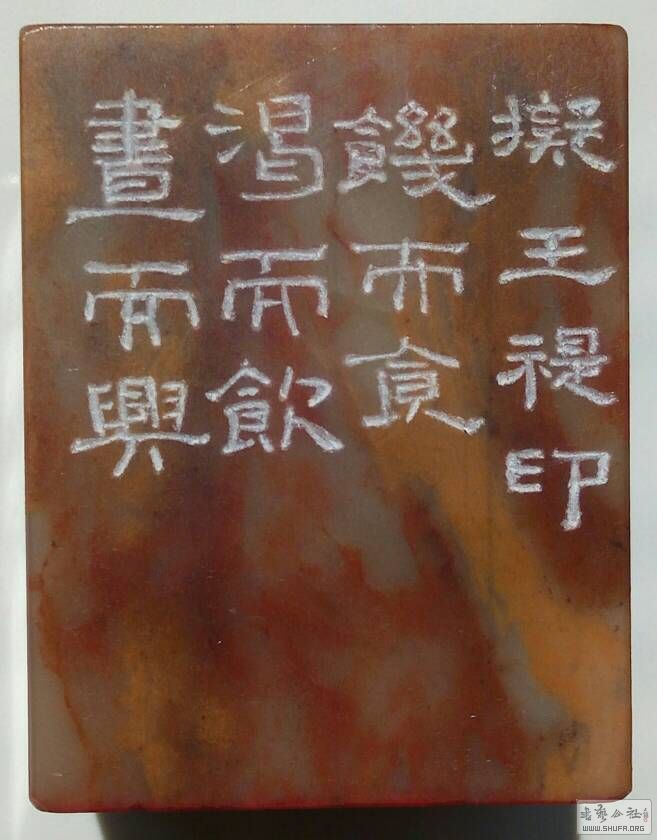 擬王禔印
饑而食
渴而飲
晝而興
WWW.SHUFA.ORG